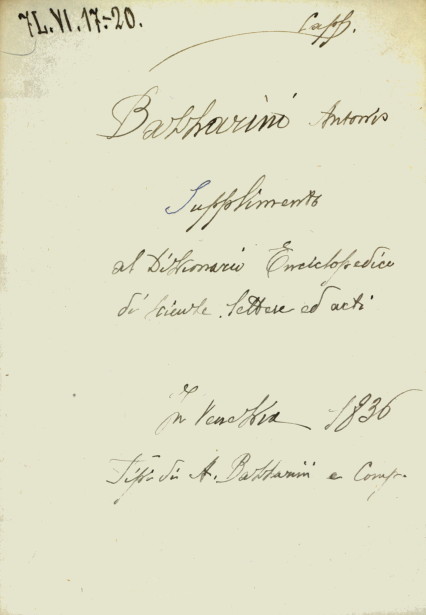 7L.VI.17-20.
Capp.
Bazzarini Antonio
Supplimento
al Dizionario Enciclopedico
di scienze lettere ed arti
In Venezia 1836
Tip. di A. Bazzarini e Comp.